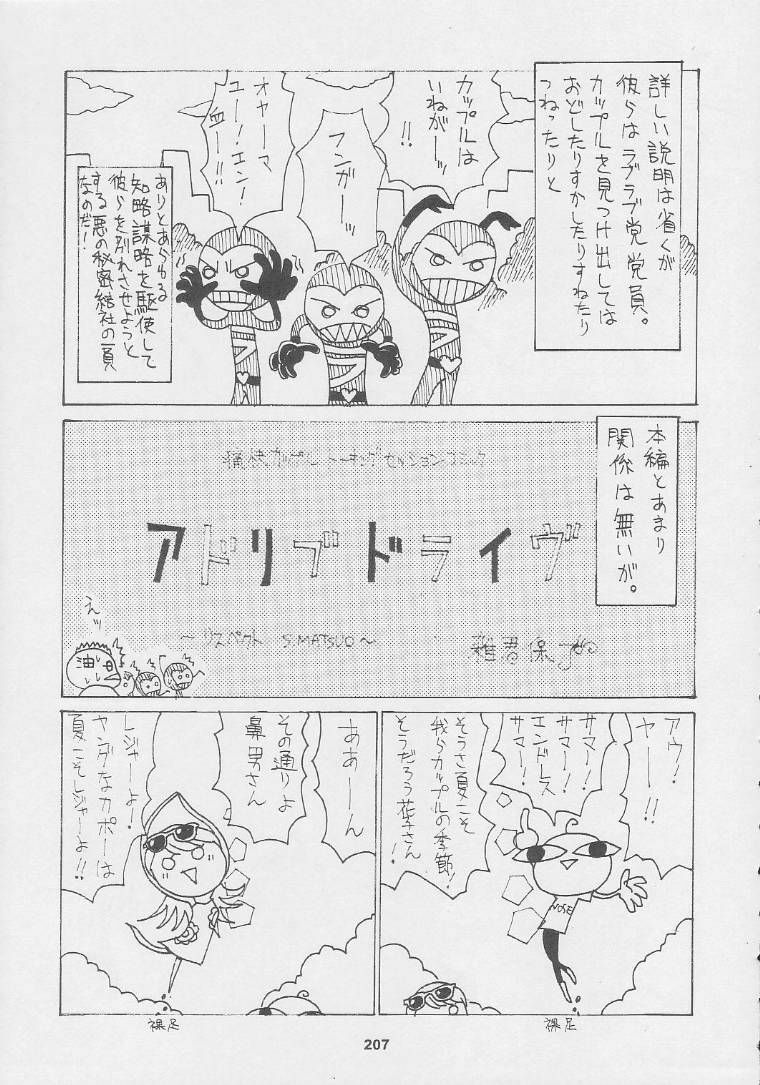 詳しい説明は省くが
彼らはラブラブ党党員。
カップルを見つけ出しては
おどしたりすかしたりすねたり
つねったりと
カップルは
いねがーッ
!!
フンガーッ
オヤーマ
ユー!エン!
ありとあらゆる
知略謀略を駆使して
彼らを別れさせようと
する悪の秘密結社の一員
なのだ!
本編とあまり
関係は無いが。
アドリブドライヴ
～リスペクト S.MATSUO～
えッ
油
アウ!
ヤー!!
サマー!
サマー!
エンドレス
サマー!
そうさ夏こそ
我らカップルの季節!
そうだろう花子さん!
NOSE
裸足
ああーん
その通りよ
鼻男さん
レジャーよー!
ヤングなカポーは
夏こそレジャーよ!!
裸足
207